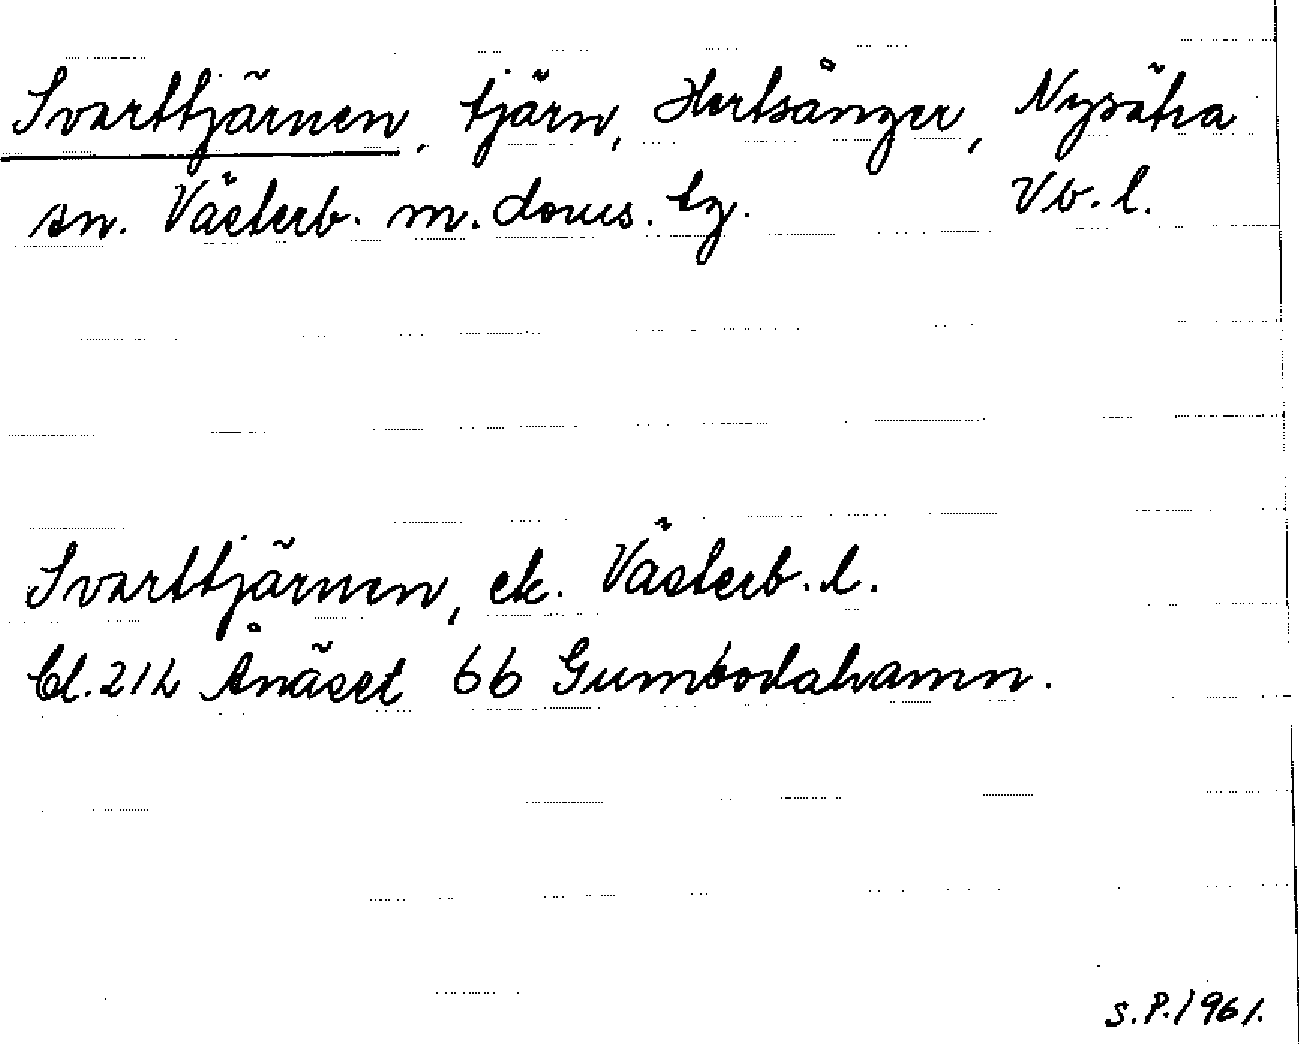 Svarttjärnen, tjärn, Hertsånger, Nysätra
sn. Västerb. m. doms. tg. Vb. l.
Svarttjärnen, ek. Västerb. l.
Bl. 21L Ånäset 6b Gumbodahamn.
S.P. 1961.